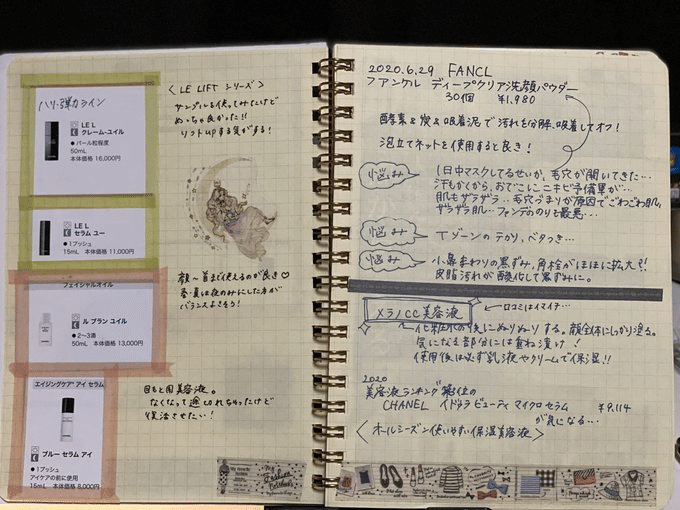 ハリ・弾力ライン
LE L
クレーム・ユイル
● パール粒程度
50mL
本体価格 16,000円
LE L
セラム ユー
● 1プッシュ
15mL 本体価格 11,000円
フェイシャルオイル
ル ブラン ユイル
● 2〜3滴
50mL 本体価格 13,000円
エイジングケア アイ セラム
ブルー セラム アイ
● 1プッシュ
アイケアの前に使用
15mL 本体価格 8,000円
< LE LIFT シリーズ >
サンプルを使ってみたけど
めっちゃ良かった!!
リフトupする気がする!
顔〜首まで使えるのが良き♡
春・夏は夜のみにした方が
バランスよさそう!
目もと用美容液。
なくなって途切れちゃったけど
復活させたい!
2020.6.29 FANCL
ファンケル ディープクリア洗顔パウダー
30個 ¥1,980
酵素&炭&吸着泥で汚れを分解、吸着してオフ!
泡立てネットを使用すると良き!
悩み
1日中マスクしてるせいか、毛穴が開いてきた…
汗もかくから、おでこにニキビ予備軍が…
肌もザラザラ…毛穴づまりが原因でごわごわ肌、
ザラザラ肌…ファンデののりも最悪…
悩み
Tゾーンのテカリ、ベタつき…
悩み
小鼻まわりの黒ずみ、角栓がほほに拡大?!
皮脂汚れが酸化して黒ずみに。
メラノCC美容液
口コミはイマイチ…
化粧水の後にぬりぬりする。顔全体にしっかり塗る。
気になる部分には重ね漬け!
使用後は必ず乳液やクリームで保湿!!
2020
美容液ランキング 位の
CHANEL イドゥラ ビューティ マイクロ セラム ¥9,114
が気になる…
< オールシーズン使いやすい保湿美容液 >
My
Fashion